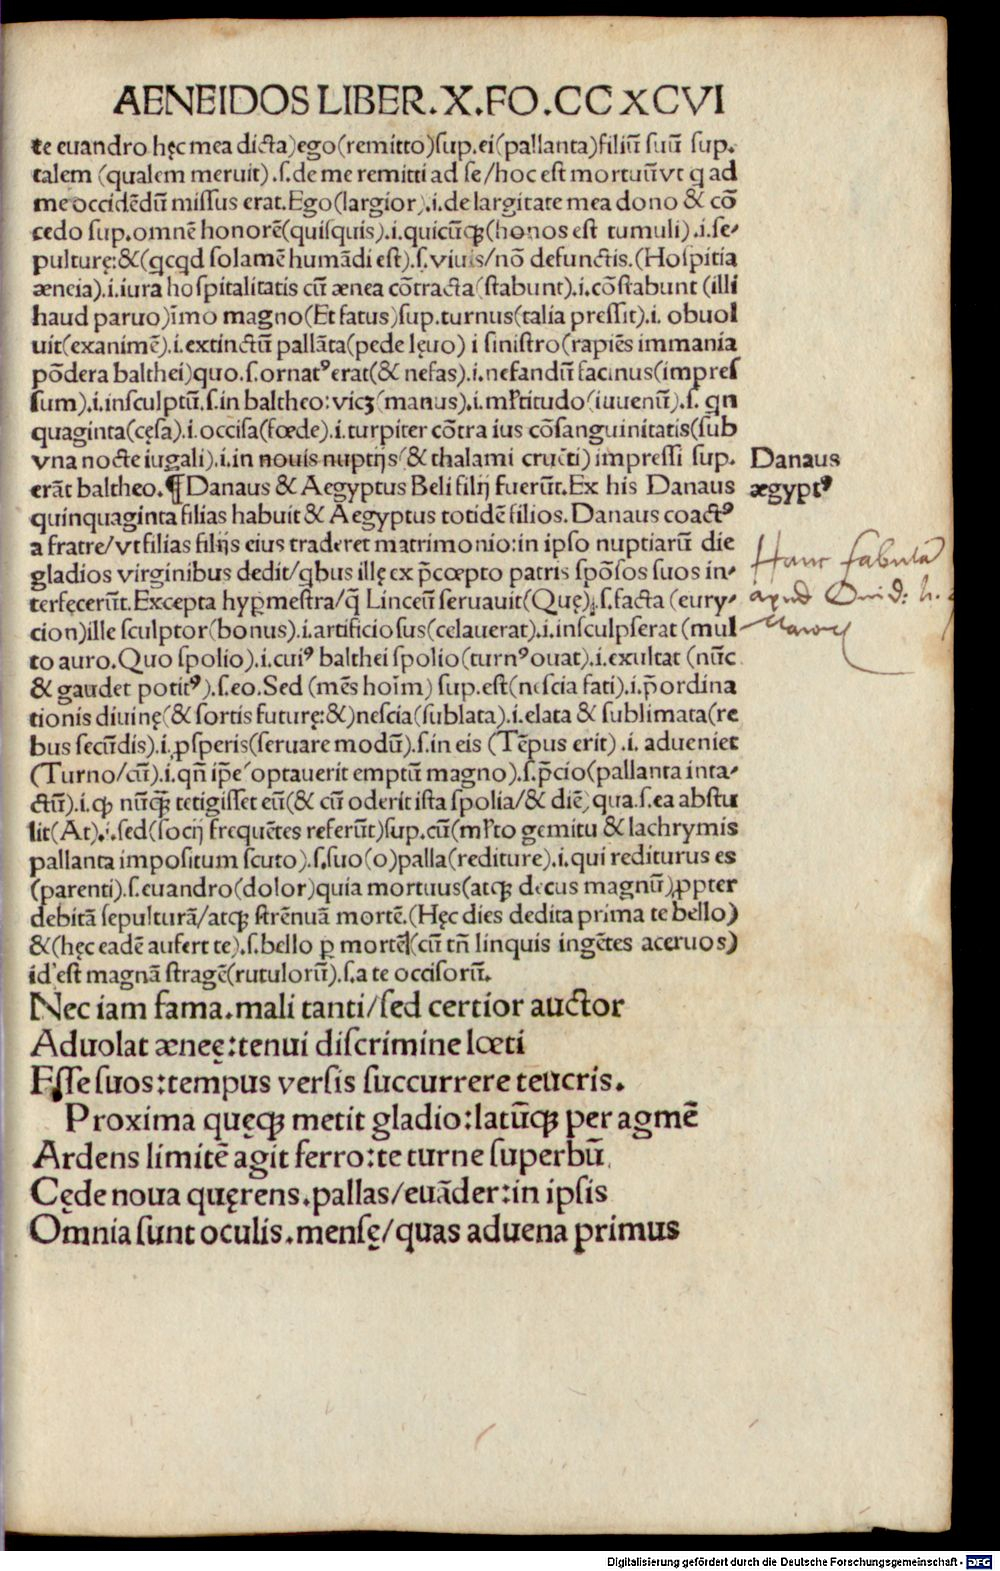 AENEIDOS LIBER.X.FO.CCXCVI
te euandro hęc mea dicta)ego(remitto)sup.ei(pallanta)filiū suū sup.
talem (qualem meruit).ſ.de me remitti ad se/hoc est mortuū vt q ad
me occidēdū missus erat.Ego(largior).i.de largitate mea dono & cō
cedo sup.omnē honorē(quisquis).i.quicūqꝫ(honos est tumuli).i.se-
pulturę:&(qcqd solamē humādi est).ſ.viuis/nō defunctis.(Hospitia
æneia).i.iura hospitalitatis cū ænea cōtracta(stabunt).i.cōstabunt (illi
haud paruo)īmo magno(Et fatus)sup.turnus(talia pressit).i. obuol
uit(exanimē).i.extinctū pallāta(pede lęuo) i sinistro(rapiēs immania
pōdera balthei)quo.ſ.ornatꝰ erat(& nefas).i.nefandū facinus(impres
sum).i.insculptū.ſ.in baltheo:vicꝫ(manus).i.mltitudo(iuuenū).ſ. qn
quaginta(cęsa).i.occisa(fœde).i.turpiter cōtra ius cōsanguinitatis(sub
vna nocte iugali).i.in nouis nuptijs(& thalami cruēti) impressi sup.
erāt baltheo.¶Danaus & Aegyptus Beli filij fuerūt.Ex his Danaus
quinquaginta filias habuit & Aegyptus totidē filios.Danaus coactꝰ
a fratre/vt filias filijs eius traderet matrimonio:in ipso nuptiarū die
gladios virginibus dedit/qbus illę ex p̄cœpto patris spōsos suos in-
terfęcerūt.Excepta hyp̱mestra/q̄ Linceū seruauit(Quę).ſ.facta (eury-
cion)ille sculptor(bonus).i.artificiosus(celauerat).i.insculpserat (mul
to auro.Quo spolio).i.cuiꝰ balthei spolio(turnꝰ ouat).i.exultat (nūc
& gaudet potitꝰ).ſ.eo.Sed (mēs hoīm) sup.est(nescia fati).i.p̄ordina
tionis diuinę(& sortis futurę:&)nescia(sublata).i.elata & sublimata(re
bus secūdis).i.ꝓsperis(seruare modū).ſ.in eis (Tēpus erit) .i. adueniet
(Turno/cū).i.qñ ip̄e(optauerit emptū magno).ſ.p̄cio(pallanta inta-
ctū).i.ꝙ nūqꝫ tetigisset eū(& cū oderit ista spolia/& diē) qua.ſ.ea abstu
lit(At).i.sed(socij frequētes referūt)sup.cū(mlto gemitu & lachrymis
pallanta impositum scuto).ſ.suo(o)palla(rediture).i.qui rediturus es
(parenti).ſ.euandro(dolor)quia mortuus(atqꝫ decus magnū)ꝓpter
debitā sepulturā/atqꝫ strēnuā mortē.(Hęc dies dedita prima te bello)
&(hęc eadē aufert te).ſ.bello p̱ mortē(cū tñ linquis ingētes aceruos)
id est magnā stragē(rutulorū).ſ.a te occisorū.
Nec iam fama.mali tanti/sed certior auctor
Aduolat æneę:tenui discrimine lœti
Esse suos:tempus versis succurrere teucris.
Proxima quęqꝫ metit gladio:latūqꝫ per agmē
Ardens limitē agit ferro:te turne superbū
Cęde noua quęrens.pallas/euāder:in ipsis
Omnia sunt oculis.mensę/quas aduena primus
Danaus
ægyptꝰ
Hanc fabulā
apud Ouid: h.
Digitalisierung gefördert durch die Deutsche Forschungsgemeinschaft - DFG